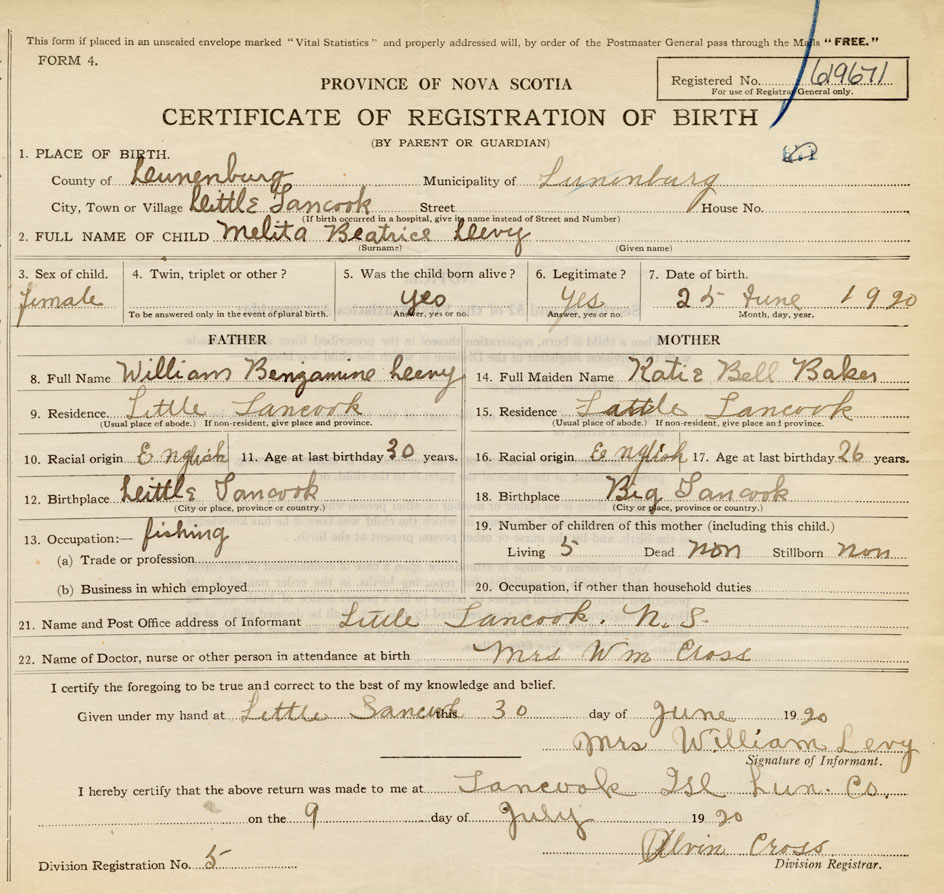 This form if placed in an unsealed envelope marked "Vital Statistics" and properly addressed will, by order of the Postmaster General pass through the Mails "FREE."
FORM 4.
Registered No. 619671
For use of Registrar General only.
PROVINCE OF NOVA SCOTIA
CERTIFICATE OF REGISTRATION OF BIRTH
(BY PARENT OR GUARDIAN)
1. PLACE OF BIRTH.
County of Leunenburg Municipality of Lunenburg
City, Town or Village Leittle Tancook Street House No.
(If birth occurred in a hospital, give its name instead of Street and Number)
2. FULL NAME OF CHILD Melita Beatrice Leevy
(Surname) (Given name)
3. Sex of child. 4. Twin, triplet or other? 5. Was the child born alive? 6. Legitimate? 7. Date of birth.
female yes yes 25 June 1920
To be answered only in the event of plural birth. Answer, yes or no. Answer, yes or no. Month, day, year.
FATHER MOTHER
8. Full Name William Bengamine Leevy 14. Full Maiden Name Katie Bell Baker
9. Residence Little Tancook 15. Residence Little Tancook
(Usual place of abode.) If non-resident, give place and province. (Usual place of abode.) If non-resident, give place and province.
10. Racial origin English 11. Age at last birthday 30 years. 16. Racial origin English 17. Age at last birthday 26 years.
12. Birthplace Leittle Tancook 18. Birthplace Big Tancook
(City or place, province or country.) (City or place, province or country.)
13. Occupation:— fishing 19. Number of children of this mother (including this child.)
(a) Trade or profession Living 5 Dead non Stillborn non
(b) Business in which employed 20. Occupation, if other than household duties
21. Name and Post Office address of Informant Little Tancook. N.S.
22. Name of Doctor, nurse or other person in attendance at birth Mrs Wm Cross
I certify the foregoing to be true and correct to the best of my knowledge and belief.
Given under my hand at Little Tancook this 30 day of June 1920
Mrs William Levy
Signature of Informant.
I hereby certify that the above return was made to me at Tancook Isl Lun. Co.
on the 9 day of July 1920
Alvin Cross
Division Registration No. 5 Division Registrar.